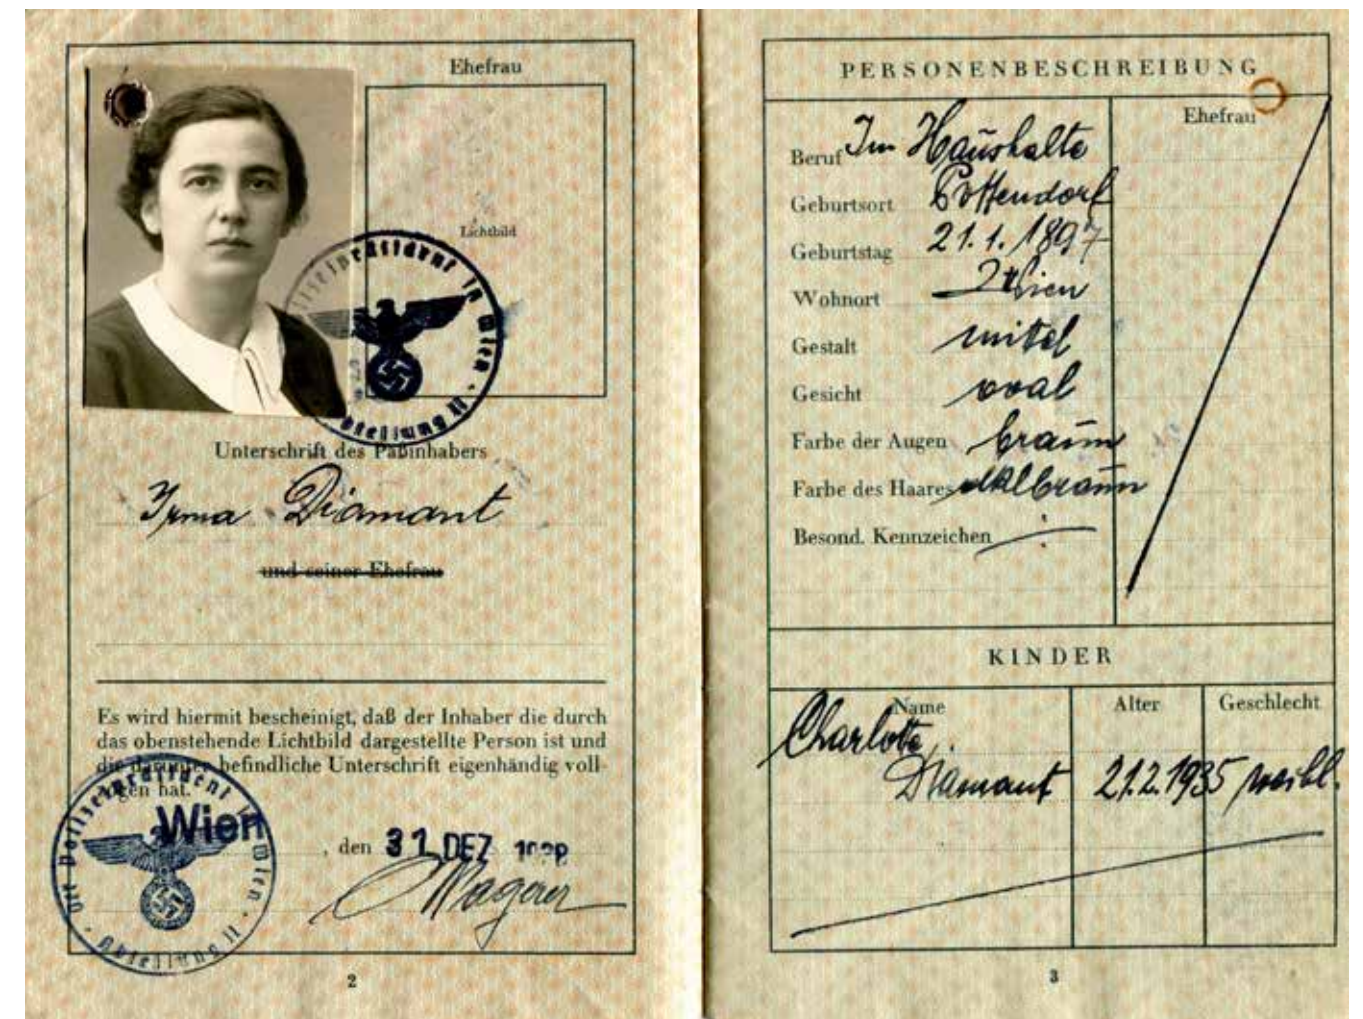 Ehefrau
Lichtbild
Der Polizeipräsident in Wien · Abteilung II
Unterschrift des Paßinhabers
Irma Diamant
und seiner Ehefrau
Es wird hiermit bescheinigt, daß der Inhaber die durch
das obenstehende Lichtbild dargestellte Person ist und
die darunter befindliche Unterschrift eigenhändig voll-
zogen hat.
Der Polizeipräsident in Wien · Abteilung II
Wien, den 31. DEZ. 1938
Wagerer
2
PERSONENBESCHREIBUNG
Ehefrau
Beruf Im Haushalte
Geburtsort Pottendorf
Geburtstag 21.1.1897
Wohnort Wien
Gestalt mittel
Gesicht oval
Farbe der Augen braun
Farbe des Haares dklbraun
Besond. Kennzeichen
KINDER
Name Alter Geschlecht
Charlotte
Diamant 21.2.1935 weibl.
3